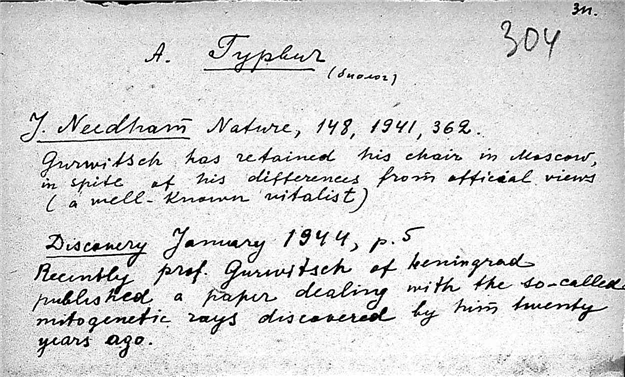 зп.
304
А. Гурвич
(биолог)
J. Needham Nature, 148, 1941, 362.
Gurwitsch has retained his chair in Moscow,
in spite of his differences from official views
(a well-known vitalist)
Discovery January 1944, p. 5
Recently prof. Gurwitsch of Leningrad
published a paper dealing with the so-called
mitogenetic rays discovered by him twenty
years ago.